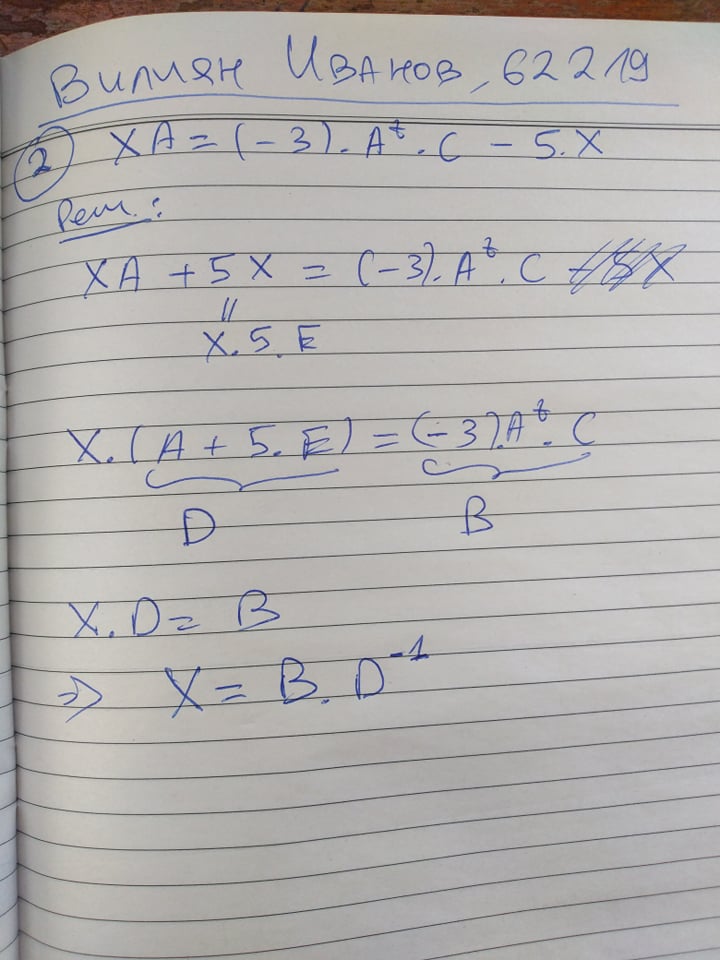 Вилиян Иванов, 62219
② XA = (-3).Aᵗ.C - 5.X
Реш.:
XA + 5X = (-3).Aᵗ.C
||
X.5.E
X.(A + 5.E) = (-3).Aᵗ.C
D B
X.D = B
=> X = B.D⁻¹